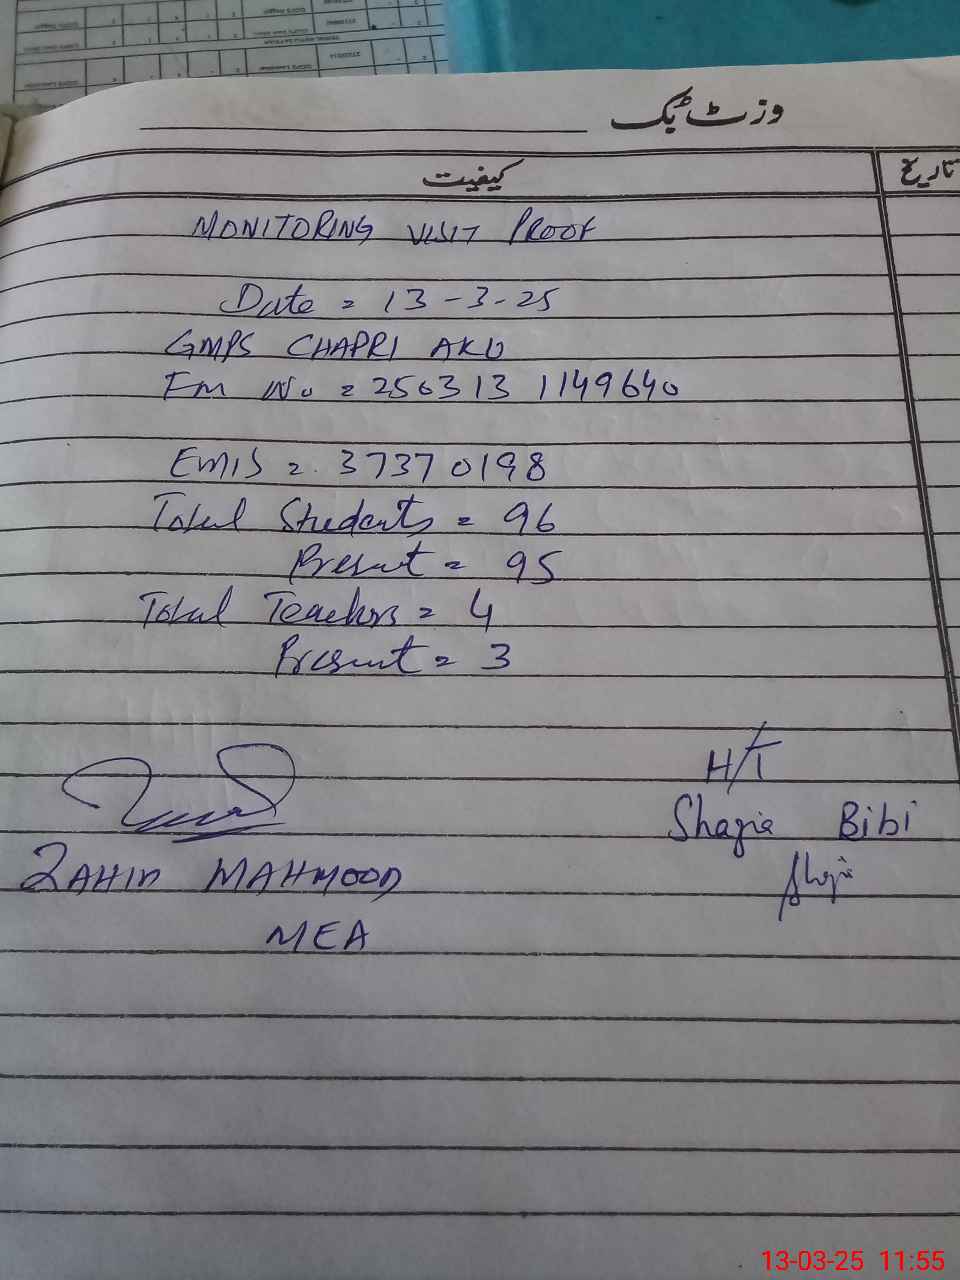 وزٹ بک
کیفیت
تاریخ
MONITORING VISIT PROOF
Date = 13-3-25
GMPS CHAPRI AKU
FM No = 250313 1149640
EMIS = 37370198
Total Students = 96
Present = 95
Total Teachers = 4
Present = 3
H/T
Shazia Bibi
ZAHID MAHMOOD
MEA
13-03-25 11:55